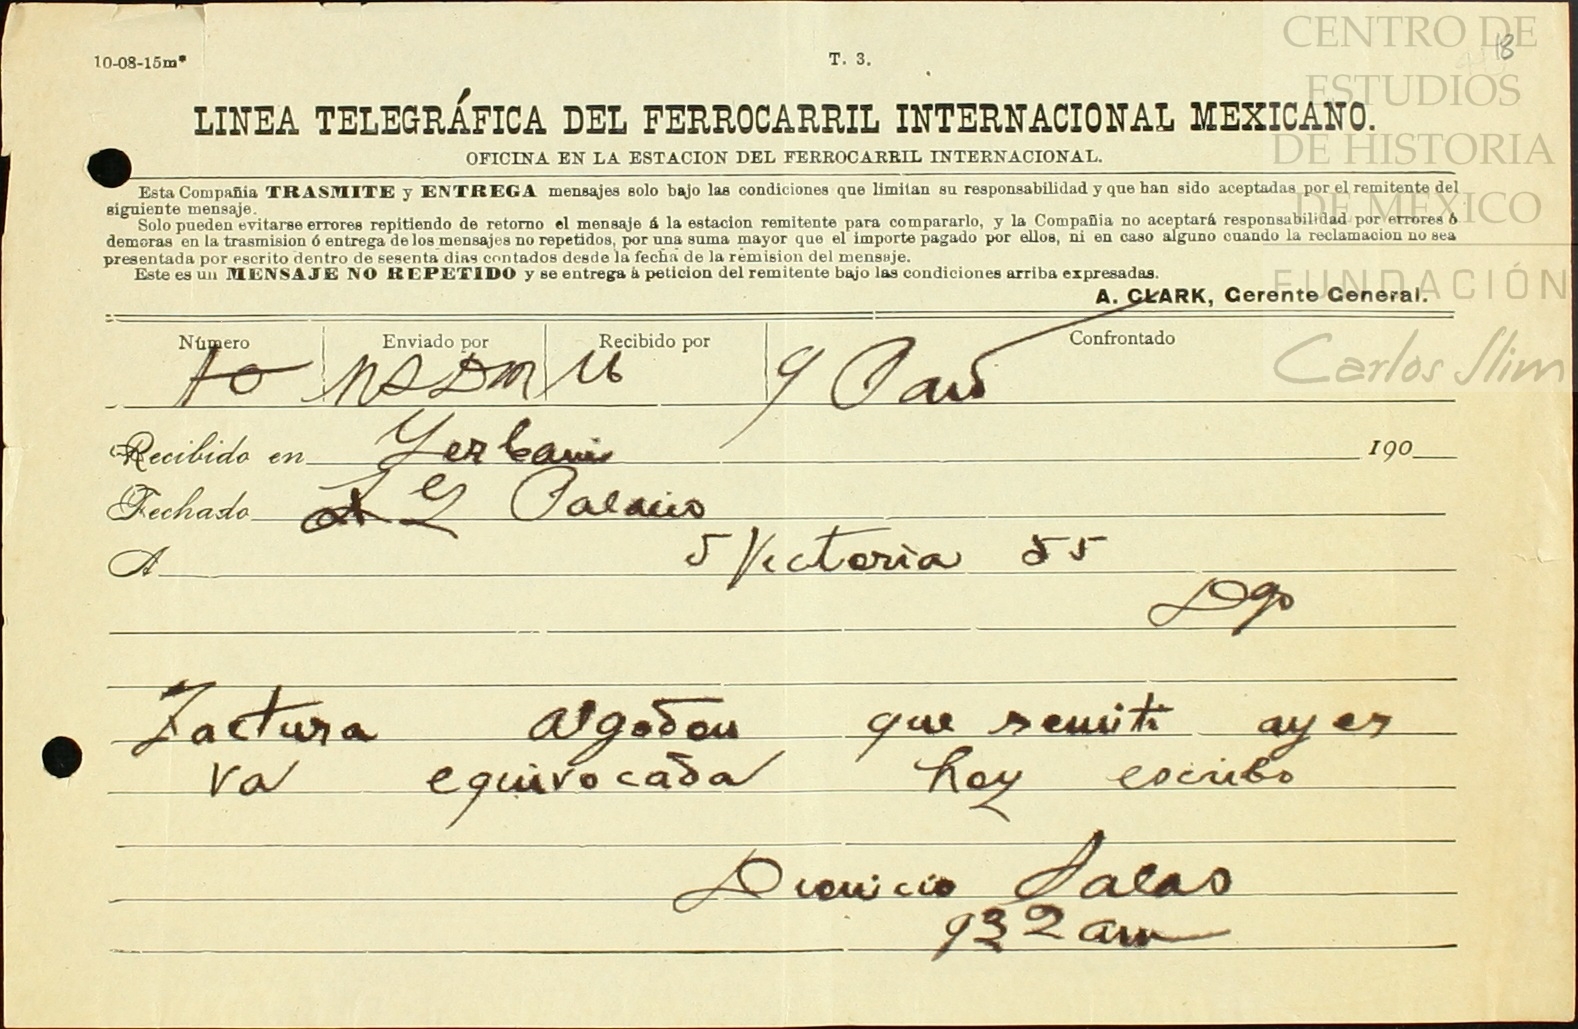 10-08-15m*
T. 3.
18
LINEA TELEGRÁFICA DEL FERROCARRIL INTERNACIONAL MEXICANO.
OFICINA EN LA ESTACION DEL FERROCARRIL INTERNACIONAL.
Esta Compañia TRASMITE y ENTREGA mensajes solo bajo las condiciones que limitan su responsabilidad y que han sido aceptadas por el remitente del
siguiente mensaje.
Solo pueden evitarse errores repitiendo de retorno el mensaje á la estacion remitente para compararlo, y la Compañia no aceptará responsabilidad por errores ó
demoras en la trasmision ó entrega de los mensajes no repetidos, por una suma mayor que el importe pagado por ellos, ni en caso alguno cuando la reclamacion no sea
presentada por escrito dentro de sesenta dias contados desde la fecha de la remision del mensaje.
Este es un MENSAJE NO REPETIDO y se entrega á peticion del remitente bajo las condiciones arriba expresadas.
A. CLARK, Gerente General.
Número Enviado por Recibido por Confrontado
10 9 Paid
Recibido en Yerbanis 190
Fechado Palacio
A 5 Victoria 55
Dgo
Factura algodon que remiti ayer
va equivocada hoy escribo
Dionicio Salas
932 am
CENTRO DE
ESTUDIOS
DE HISTORIA
DE MÉXICO
FUNDACIÓN
Carlos Slim